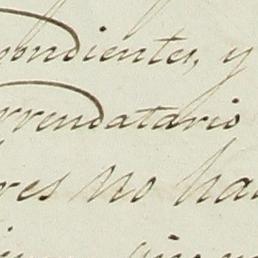 pondientes, y
rrendatario
res no ha